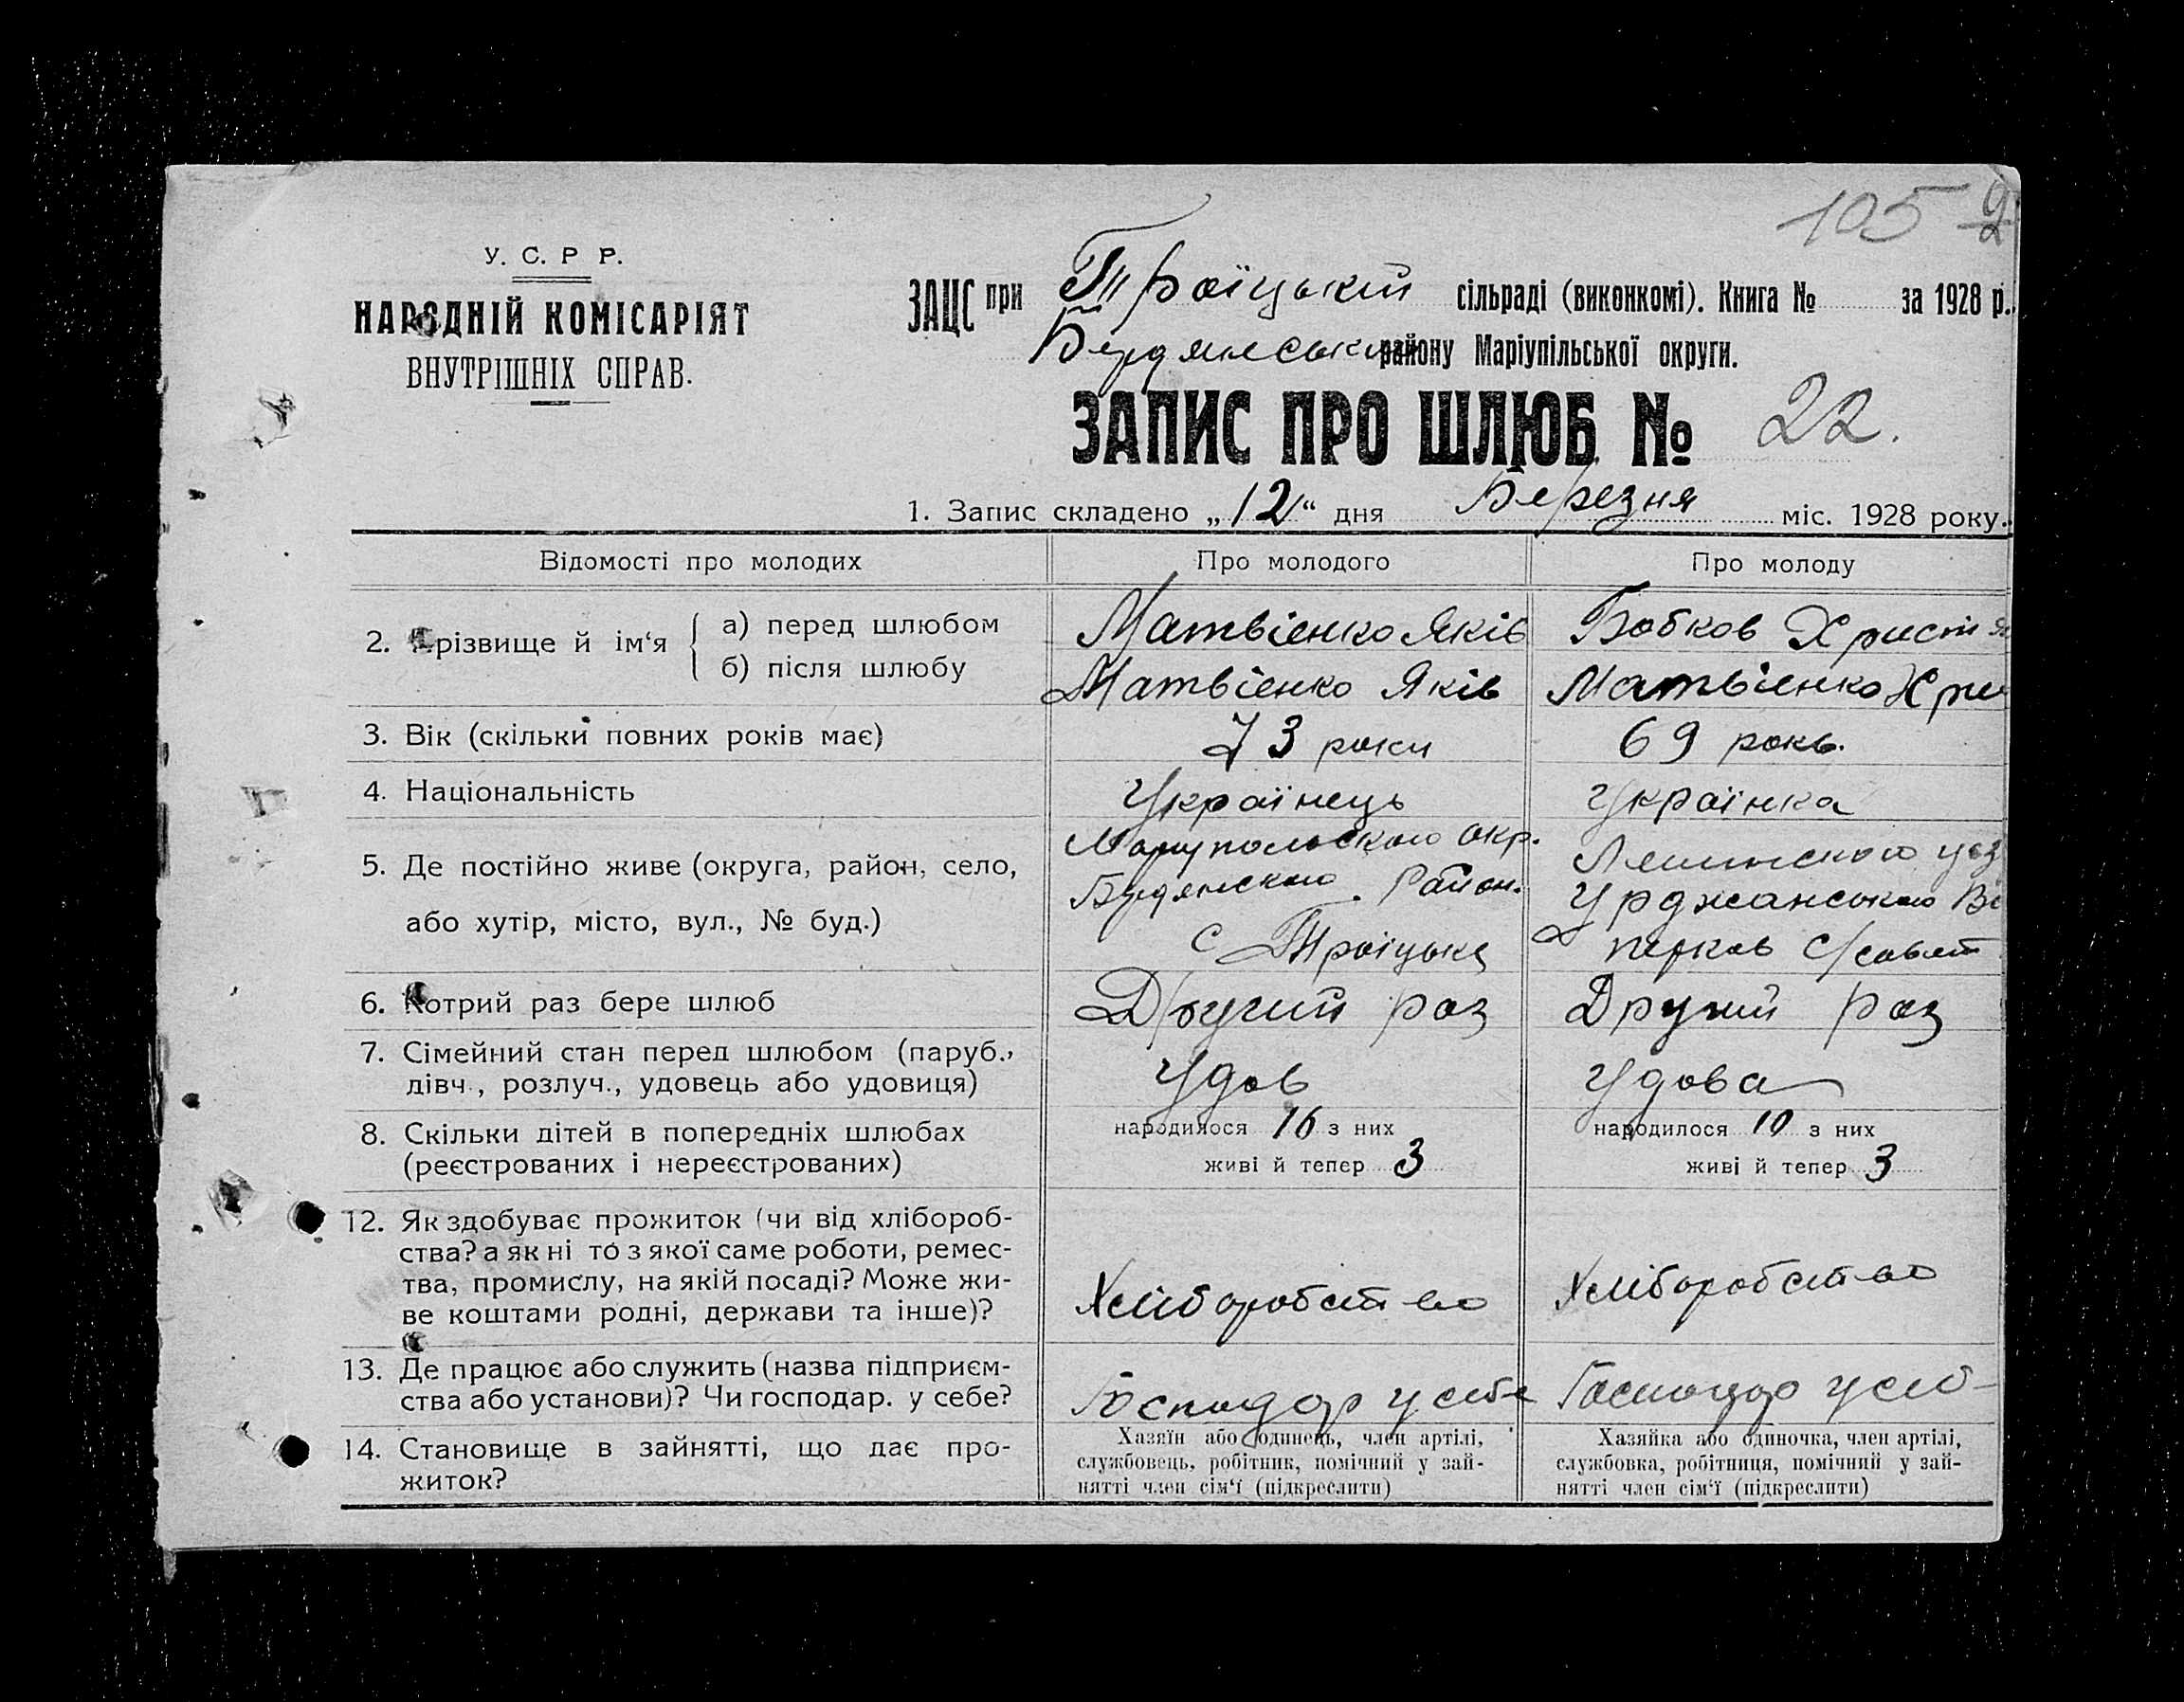 105
2
У. С. Р Р.
НАРОДНІЙ КОМІСАРІЯТ
ВНУТРІШНІХ СПРАВ.
ЗАЦС при Троїцькій сільраді (виконкомі). Книга № за 1928 р.
Бердянського району Маріупільської округи.
ЗАПИС ПРО ШЛЮБ № 22.
1. Запис складено „12“ дня Березня міс. 1928 року.
Відомості про молодих Про молодого Про молоду
2. Прізвище й ім‘я
а) перед шлюбом Матвіенко Яків Бобков Христия
б) після шлюбу Матвіенко Яків Матвіенко Хри
3. Вік (скільки повних років має) 73 роки 69 рокв.
4. Національність Українець Українка
5. Де постійно живе (округа, район, село,
або хутір, місто, вул., № буд.)
Маруполського окр.
Бердянского Район.
с Троіцьке
Урджанського
6. Котрий раз бере шлюб Другий раз Другий раз
7. Сімейний стан перед шлюбом (паруб.,
дівч., розлуч., удовець або удовиця) Удов Удова
8. Скільки дітей в попередніх шлюбах
(реєстрованих і нереєстрованих)
народилося 16 з них
живі й тепер 3
народилося 10 з них
живі й тепер 3
12. Як здобуває прожиток (чи від хлібороб-
ства? а як ні то з якої саме роботи, ремес-
тва, промислу, на якій посаді? Може жи-
ве коштами родні, держави та інше)?
Хліборобство Хліборобство
13. Де працює або служить (назва підприєм-
ства або установи)? Чи господар. у себе?
Господар у себе Господар у себ
14. Становище в зайнятті, що дає про-
житок?
Хазяїн або одинець, член артілі,
службовець, робітник, помічний у зай-
нятті член сім‘ї (підкреслити)
Хазяйка або одиночка, член артілі,
службовка, робітниця, помічний у зай-
нятті член сім‘ї (підкреслити)